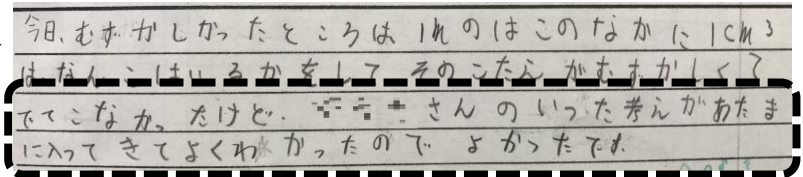 今日、むずかしかったところは、1mのはこのなかに1cm3
は、なんこはいるかをしてそのこたえがむずかしくて
でてこなかったけど、さんのいった考えがあたま
に入ってきてよくわかったのでよかったです。